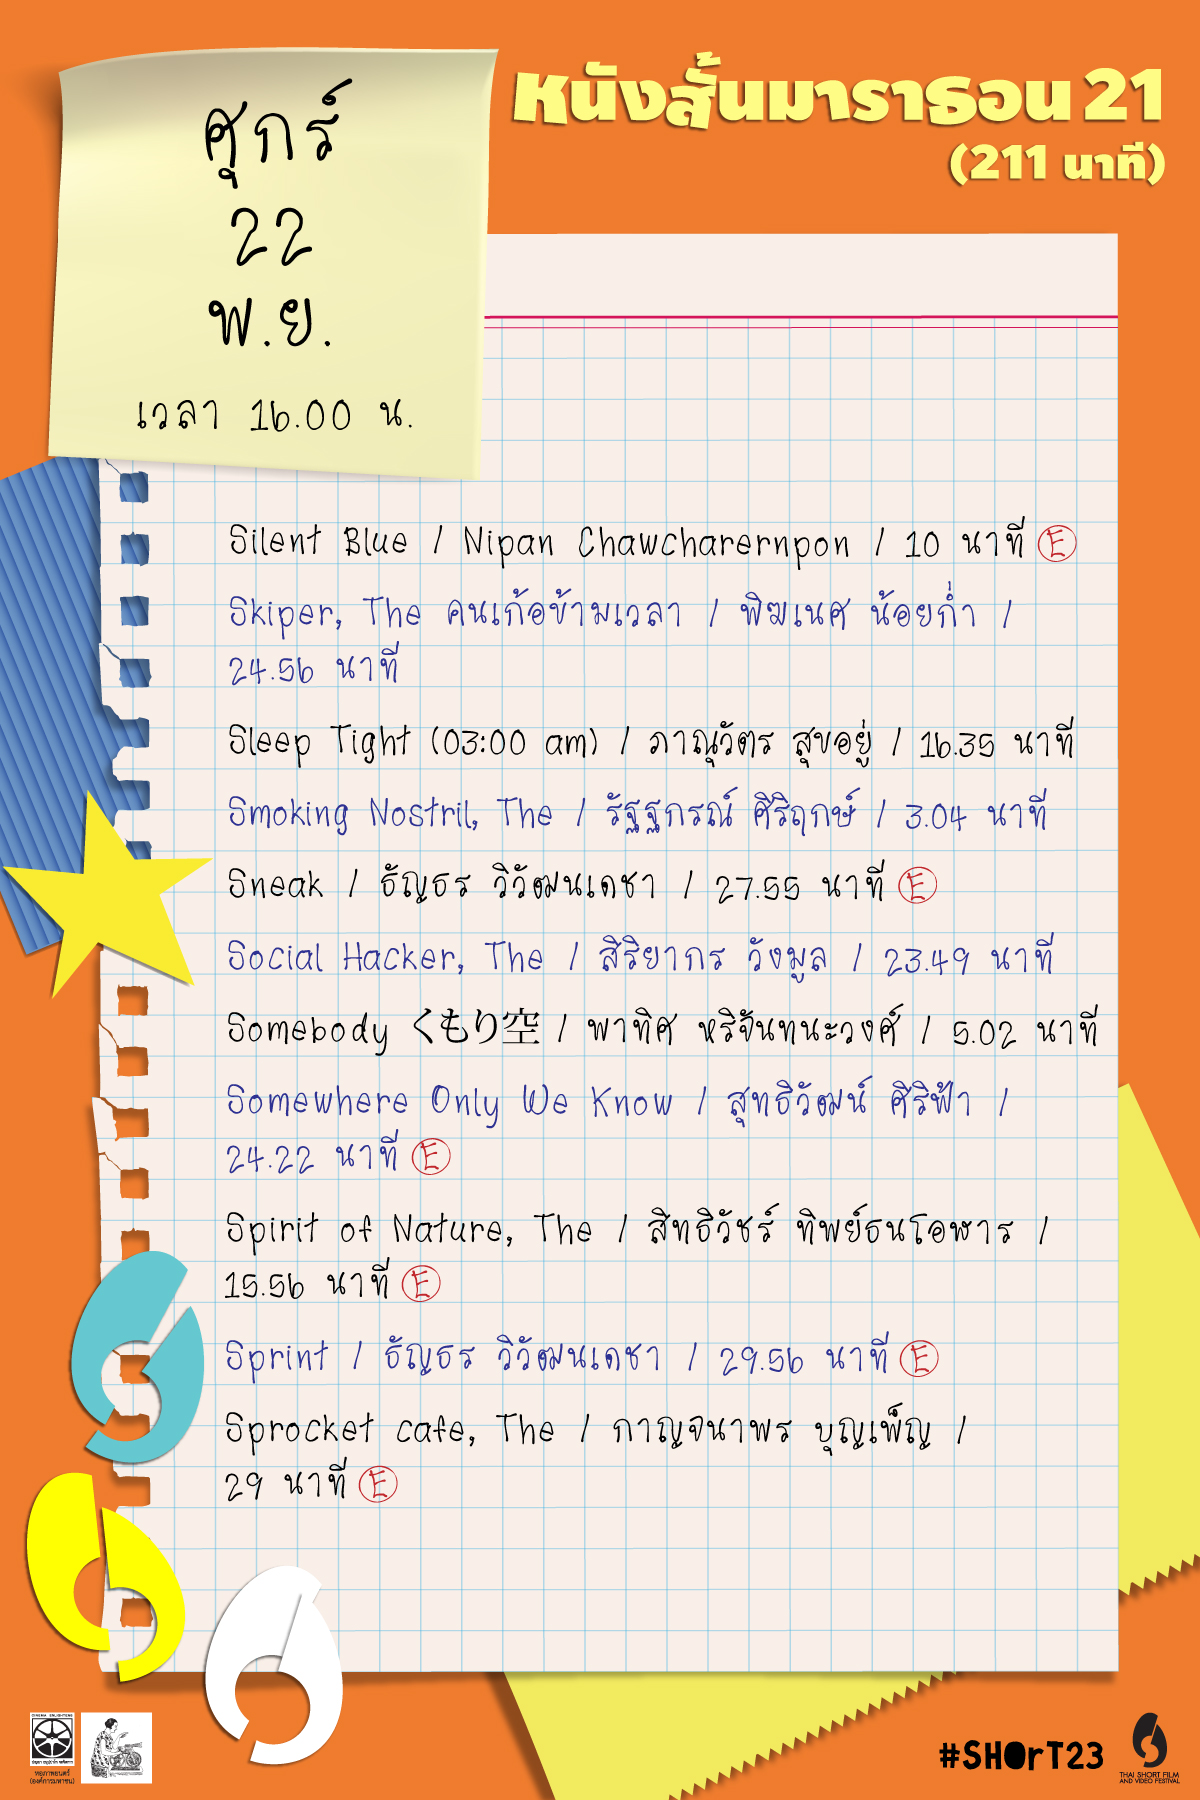 ศุกร์
22
พ.ย.
เวลา 16.00 น.
หนังสั้นมาราธอน 21
(211 นาที)
Silent Blue / Nipan Chawcharernpon / 10 นาที E
Skiper, The คนเก้อข้ามเวลา / พิฆเนศ น้อยก่ำ /
24.56 นาที
Sleep Tight (03:00 am) / ภาณุวัตร สุขอยู่ / 16.35 นาที
Smoking Nostril, The / รัฐฐกรณ์ ศิริฤกษ์ / 3.04 นาที
Sneak / ธัญธร วิวัฒนเดชา / 27.55 นาที E
Social Hacker, The / สิริยากร วังมูล / 23.49 นาที
Somebody くもり空 / พาทิศ หริจันทนะวงศ์ / 5.02 นาที
Somewhere Only We Know / สุทธิวัฒน์ ศิริฟ้า /
24.22 นาที E
Spirit of Nature, The / สิทธิวัชร์ ทิพย์ธนโอฬาร /
15.56 นาที E
Sprint / ธัญธร วิวัฒนเดชา / 29.56 นาที E
Sprocket cafe, The / กาญจนาพร บุญเพ็ญ /
29 นาที E
CINEMA ENLIGHTENS
หอภาพยนตร์
(องค์การมหาชน)
#SHOrT23
THAI SHORT FILM
AND VIDEO FESTIVAL